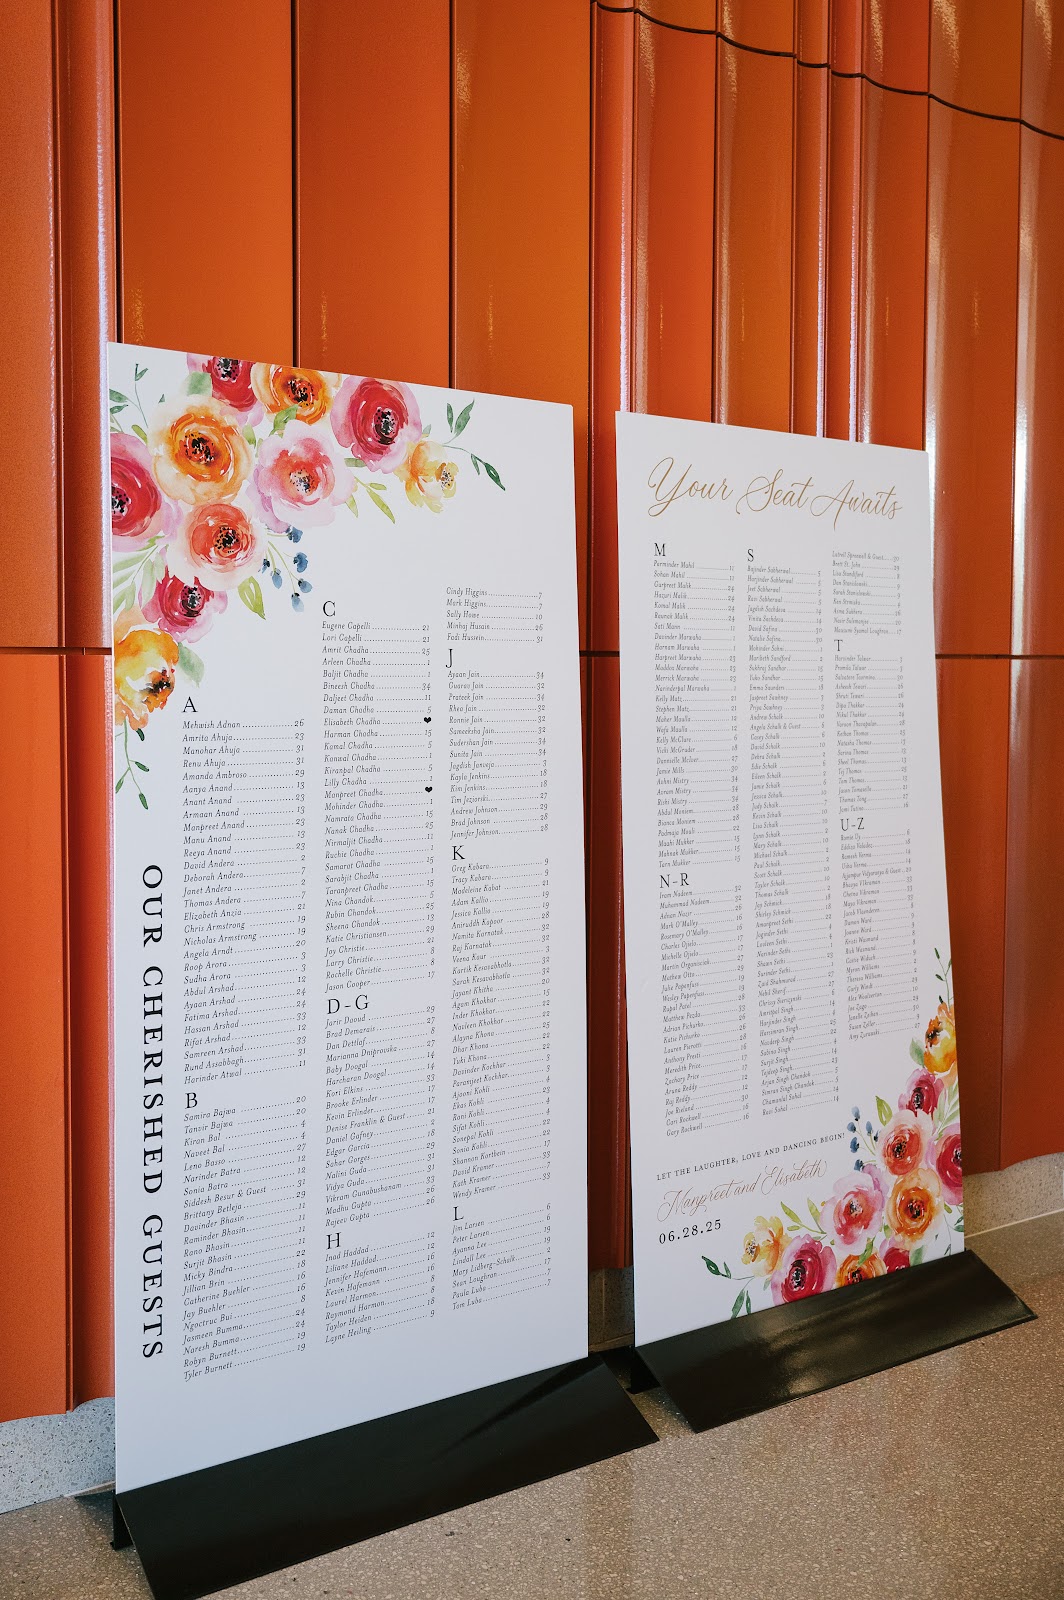 OUR CHERISHED GUESTS
A
Mehwish Adnan 26
Amrita Ahuja 23
Manohar Ahuja 31
Renu Ahuja 31
Amanda Ambroso 29
Aanya Anand 13
Anant Anand 13
Armaan Anand 13
Manpreet Anand 13
Manu Anand 13
Reeya Anand 23
David Andera 2
Deborah Andera 7
Janet Andera 2
Thomas Andera 7
Elizabeth Anzia 21
Chris Armstrong 19
Nicholas Armstrong 19
Angela Arndt 20
Roop Arora 3
Sudha Arora 3
Abdul Arshad 12
Ayaan Arshad 24
Fatima Arshad 24
Hassan Arshad 33
Rifat Arshad 12
Samreen Arshad 33
Rund Assabbagh 31
Harinder Atwal 11
B
Samira Bajwa 20
Tanvir Bajwa 20
Kiran Bal 4
Naveet Bal 4
Leno Basso 27
Narinder Batra 12
Sonia Batra 12
Siddesh Besur & Guest 31
Brittany Betleja 29
Davinder Bhasin 11
Raminder Bhasin 11
Rano Bhasin 11
Surjit Bhasin 22
Micky Bindra 18
Jillian Brin 16
Catherine Buehler 16
Jay Buehler 8
Ngoctruc Bui 24
Jasmeen Bumma 24
Naresh Bumma 24
Robyn Burnett 19
Tyler Burnett 19
C
Eugene Capelli 21
Lori Capelli 21
Amrit Chadha 25
Arleen Chadha 1
Baljit Chadha 1
Bineesh Chadha 34
Daljeet Chadha 11
Daman Chadha 5
Elisabeth Chadha ♥
Harman Chadha 15
Komal Chadha 5
Konwal Chadha 1
Kiranpal Chadha 5
Lilly Chadha 1
Manpreet Chadha ♥
Mohinder Chadha 1
Namrata Chadha 15
Nanak Chadha 25
Nirmaljit Chadha 11
Ruchie Chadha 1
Samarat Chadha 15
Sarabjit Chadha 1
Taranpreet Chadha 15
Nina Chandok 5
Rubin Chandok 5
Sheena Chandok 13
Katie Christiansen 29
Joy Christie 17
Larry Christie 17
Rochelle Christie 8
Jason Cooper 17
D-G
Jarir Daoud 29
Brad Demarais 27
Dan Detllaf 8
Marianna Dniprovska 17
Baby Doogal 14
Harcharan Doogal 14
Kori Elkins 33
Brooke Erlinder 17
Kevin Erlinder 17
Denise Franklin & Guest 21
Daniel Gafney 2
Edgar Garcia 18
Sahar Gorges 31
Nalini Guda 31
Vidya Guda 31
Vikram Gunabushanam 33
Madhu Gupta 26
Rajeev Gupta 26
H
Inad Haddad 12
Liliane Haddad 12
Jennifer Hafemann 16
Kevin Hafemann 16
Laurel Harmon 8
Raymond Harmon 8
Taylor Heiden 18
Layne Heiling 9
Cindy Higgins 7
Mark Higgins 7
Sally Howe 10
Minhaj Husain 26
Fadi Hussein 31
J
Ayaan Jain 34
Gaurav Jain 32
Prateek Jain 34
Rhea Jain 32
Ronnie Jain 32
Sameeksha Jain 32
Sudershan Jain 34
Sunita Jain 34
Jagdish Janveja 3
Kayla Jenkins 18
Kim Jenkins 18
Tim Jeziorski 27
Andrew Johnson 29
Brad Johnson 28
Jennifer Johnson 28
K
Greg Kabara 9
Tracy Kabara 9
Madeleine Kabat 21
Adam Kallio 19
Jessica Kallio 19
Aniruddh Kapoor 28
Namita Karnatak 32
Raj Karnatak 32
Veena Kaur 3
Kartik Kesavabhotla 32
Sarah Kesavabhotla 32
Jayant Khitha 20
Agam Khokhar 15
Inder Khokhar 22
Navleen Khokhar 22
Alayna Khona 22
Dhar Khona 22
Yuki Khona 22
Davinder Kochhar 3
Paramjeet Kochhar 3
Ajooni Kohli 23
Ekas Kohli 4
Roni Kohli 4
Sifat Kohli 4
Sonepal Kohli 22
Sonia Kohli 22
Shannon Kortbein 17
David Kramer 7
Kath Kramer 7
Wendy Kramer 33
L
Jim Larsen 6
Peter Larsen 6
Ayanna Lee 19
Lindall Lee 19
Mary Lidberg-Schalk 2
Sean Loughran 17
Paula Lubo 7
Tom Lubo 7
Your Seat Awaits
M
Parminder Mahil 11
Sohan Mahil 11
Gurpreet Malik 24
Hazuri Malik 24
Komal Malik 24
Raunak Malik 24
Sati Mann 11
Davinder Marwaha 1
Hornam Marwaha 1
Harpreet Marwaha 23
Maddox Marwaha 23
Merrick Marwaha 23
Narinderpal Marwaha 1
Kelly Matz 21
Stephen Matz 21
Maher Maulla 12
Wafa Maulla 12
Kelly McClure 6
Vicki McGruder 18
Dannielle McIver 27
Jamie Mills 30
Ashni Mistry 34
Avram Mistry 34
Rishi Mistry 34
Abdul Moniem 28
Bianca Moniem 28
Padmaja Mouli 22
Maahi Mukker 15
Mahnak Mukker 15
Tarn Mukker 15
N-R
Iram Nadeem 32
Muhammad Nadeem 32
Adnan Nazir 26
Mark O'Malley 16
Rosemary O'Malley 16
Charles Ojelo 17
Michelle Ojelo 17
Martin Organiscius 27
Mathew Otto 19
Julie Papenfuss 19
Wesley Papenfuss 19
Rupal Patel 28
Matthew Pazda 33
Adrian Pichurko 26
Katie Pichurko 28
Lauren Pierotti 28
Anthony Presti 17
Meredith Price 17
Zachary Price 12
Aruna Reddy 12
Raj Reddy 30
Joe Rieland 16
Cari Rockwell 16
Gary Rockwell 16
S
Rajinder Sabharwal 5
Harjinder Sabharwal 5
Jeet Sabharwal 5
Ravi Sabharwal 5
Jagdish Sachdeva 14
Vinita Sachdeva 14
David Safina 30
Natalie Safina 30
Mohinder Sahni 1
Maribeth Sandford 2
Sukhraj Sandhar 15
Yuko Sandhar 15
Emma Saunders 18
Jaspreet Sawhney 3
Priya Sawhney 3
Andrew Schalk 10
Angela Schalk & Guest 8
Casey Schalk 6
David Schalk 10
Debra Schalk 2
Edie Schalk 6
Eileen Schalk 2
Jamie Schalk 6
Jessica Schalk 10
Judy Schalk 7
Kevin Schalk 10
Lisa Schalk 2
Lynn Schalk 2
Mary Schalk 10
Michael Schalk 2
Paul Schalk 2
Scott Schalk 10
Taylor Schalk 10
Thomas Schalk 2
Jay Schmick 18
Shirley Schmick 18
Amargeret Sethi 4
Jagvinder Sethi 4
Lovleen Sethi 1
Narinder Sethi 1
Shawn Sethi 23
Surender Sethi 1
Zaid Shahmurad 27
Nabil Sharif 6
Chrissy Sierszynski 6
Amritpal Singh 4
Harjinder Singh 4
Harsimran Singh 25
Navdeep Singh 4
Sabina Singh 14
Surjit Singh 14
Tejdeep Singh 23
Arjan Singh Chandok 5
Simran Singh Chandok 5
Chamanlal Sohal 14
Rani Sohal 14
Latrell Sprewwell & Guest 30
Brett St. John 29
Lisa Standiford 9
Dan Stanislawski 9
Sarah Stanislawski 9
Ken Strmske 6
Anna Sukhera 16
Noor Sulemanjee 10
Masuum Syamal Loughran 17
T
Harvinder Talwar 3
Promila Talwar 3
Salvatore Taormina 30
Ashwath Tewari 26
Shruti Tewari 26
Dipa Thakkar 24
Nihal Thakkar 24
Varsan Thavapalan 28
Kethan Thomas 25
Natasha Thomas 13
Sarina Thomas 13
Sheel Thomas 13
Tej Thomas 25
Tom Thomas 13
Jason Tomasello 21
Thomas Tong 27
Jami Tutino 16
U-Z
Romie Uy 6
Edduin Veladez 18
Romesh Verma 14
Usha Verma 14
Ajjampur Vidyaranya & Guest 20
Bhavya Vikraman 33
Chaitra Vikraman 33
Maya Vikraman 33
Jacob Vlaanderen 20
Damon Ward 9
Joanne Ward 9
Kristi Wasmund 8
Rick Wasmund 8
Gabbie Widuch 9
Myron Williams 2
Theresa Williams 2
Carly Winek 10
Alex Woolverton 29
Joe Zago 30
Janelle Zaiken 30
Susan Zeller 9
Amy Zuranski 17
LET THE LAUGHTER, LOVE AND DANCING BEGIN!
Manpreet and Elisabeth
06.28.25